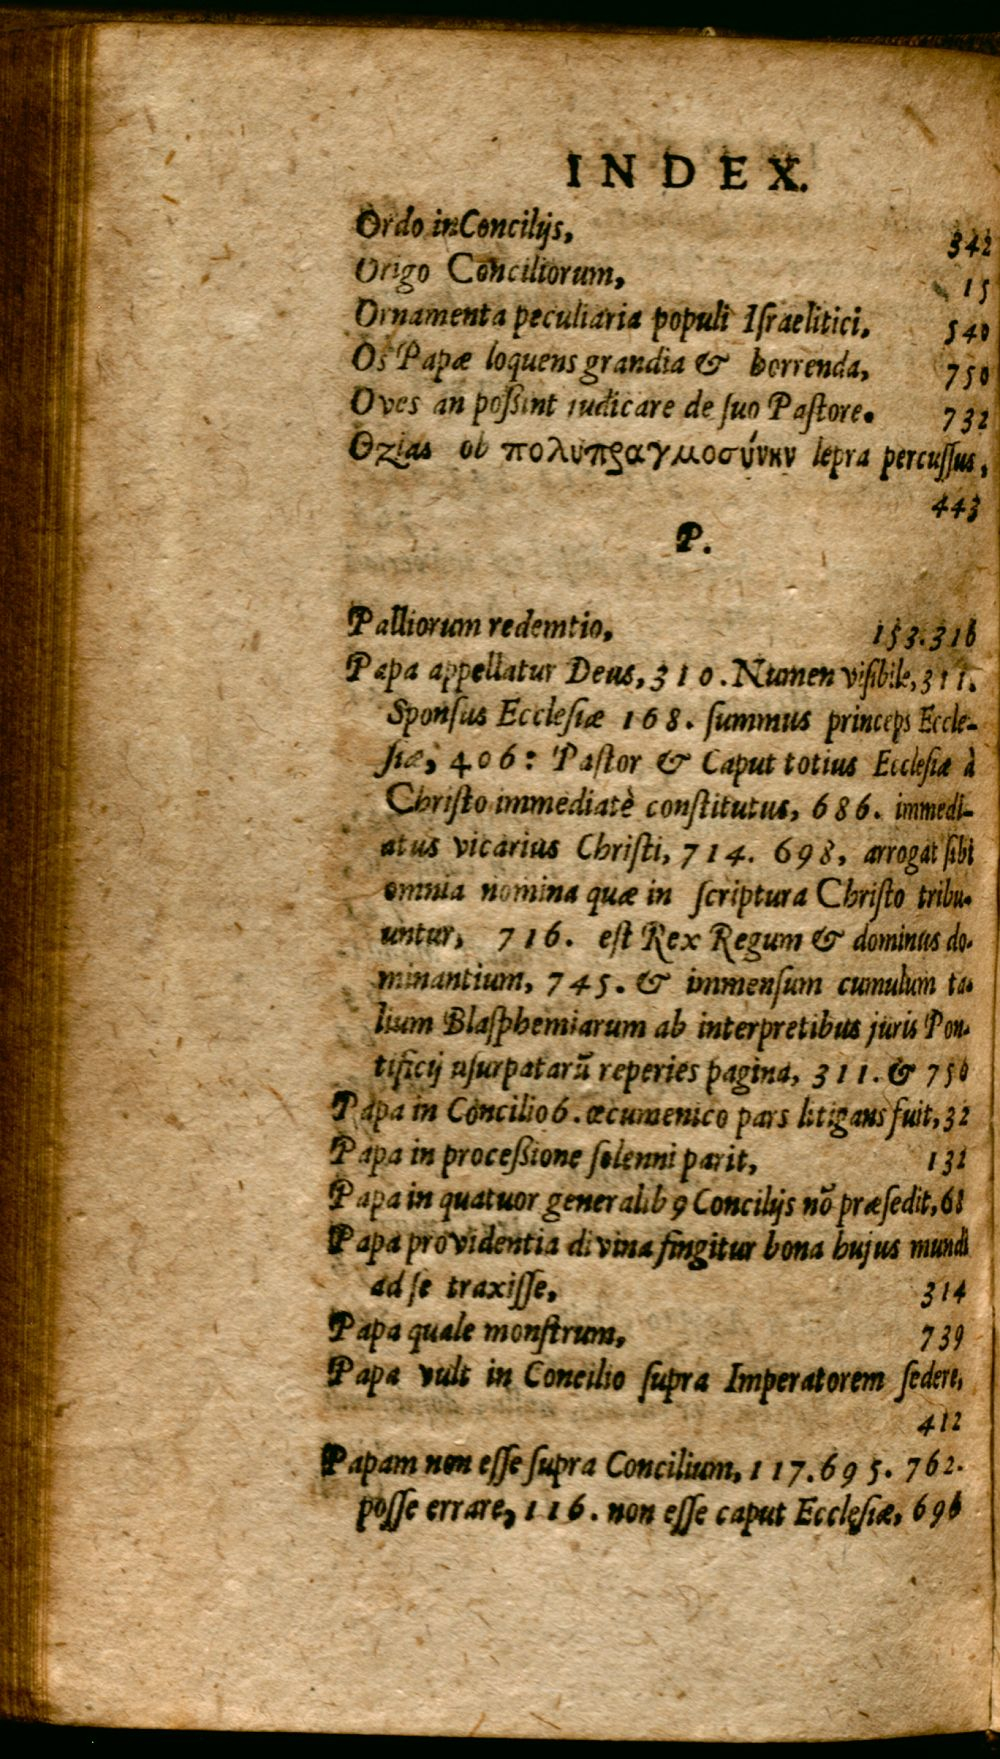 INDEX.
Ordo in Concilijs, 342
Origo Conciliorum, 15
Ornamenta peculiaria populi Iſraelitici. 540
Os Papæ loquens grandia & horrenda, 750
Oves an poßint iudicare de ſuo Paſtore. 732
Ozias ob πολυπραγμοσύνην lepra percuſſus,
443
P.
Palliorum redemtio, 153.316
Papa appellatur Deus, 310. Numen viſibile, 311.
Sponſus Eccleſiæ 168. ſummus princeps Eccle-
ſiæ, 406: Paſtor & Caput totius Eccleſiæ à
Chriſto immediatè conſtitutus, 686. immedi-
atus vicarius Chriſti, 714. 698, arrogat ſibi
omnia nomina quæ in ſcriptura Chriſto tribu-
untur, 716. eſt Rex Regum & dominus do-
minantium, 745. & immenſum cumulum ta-
lium Blaſphemiarum ab interpretibus juris Pon-
tificij uſurpatarũ reperies pagina, 311. & 750
Papa in Concilio 6. œcumenico pars litigans fuit, 32
Papa in proceßione ſolenni parit, 132
Papa in quatuor generalibꝰ Concilijs nõ præſedit, 68
Papa providentia divina fingitur bona hujus mundi
ad ſe traxiſſe, 314
Papa quale monſtrum, 739
Papa vult in Concilio ſupra Imperatorem ſedere,
412
Papam non eſſe ſupra Concilium, 117.695. 762.
poſſe errare, 116. non eſſe caput Eccleſiæ, 696